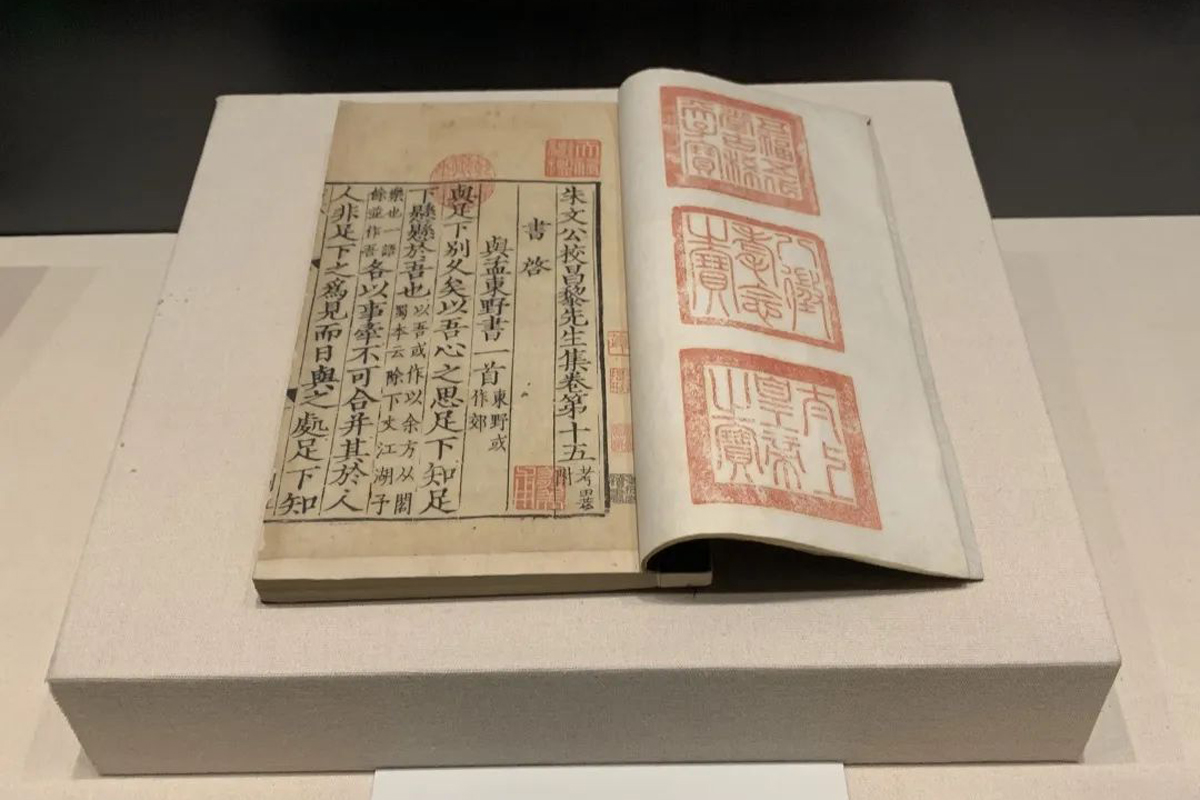 五福五代
堂古稀
天子寶
八徵
耄念
之寶
太上
皇帝
之寶
天祿
琳琅
朱文公校昌黎先生集卷第十五考異附
書啓
與孟東野書一首東野或作郊
與足下別久矣以吾心之思足下知足
下懸懸於吾也以吾或作以余方从閣蜀本云除下文江湖子
樂也一語餘並作吾各以事牽不可合并其於人
人非足下之爲見而日與之處足下知